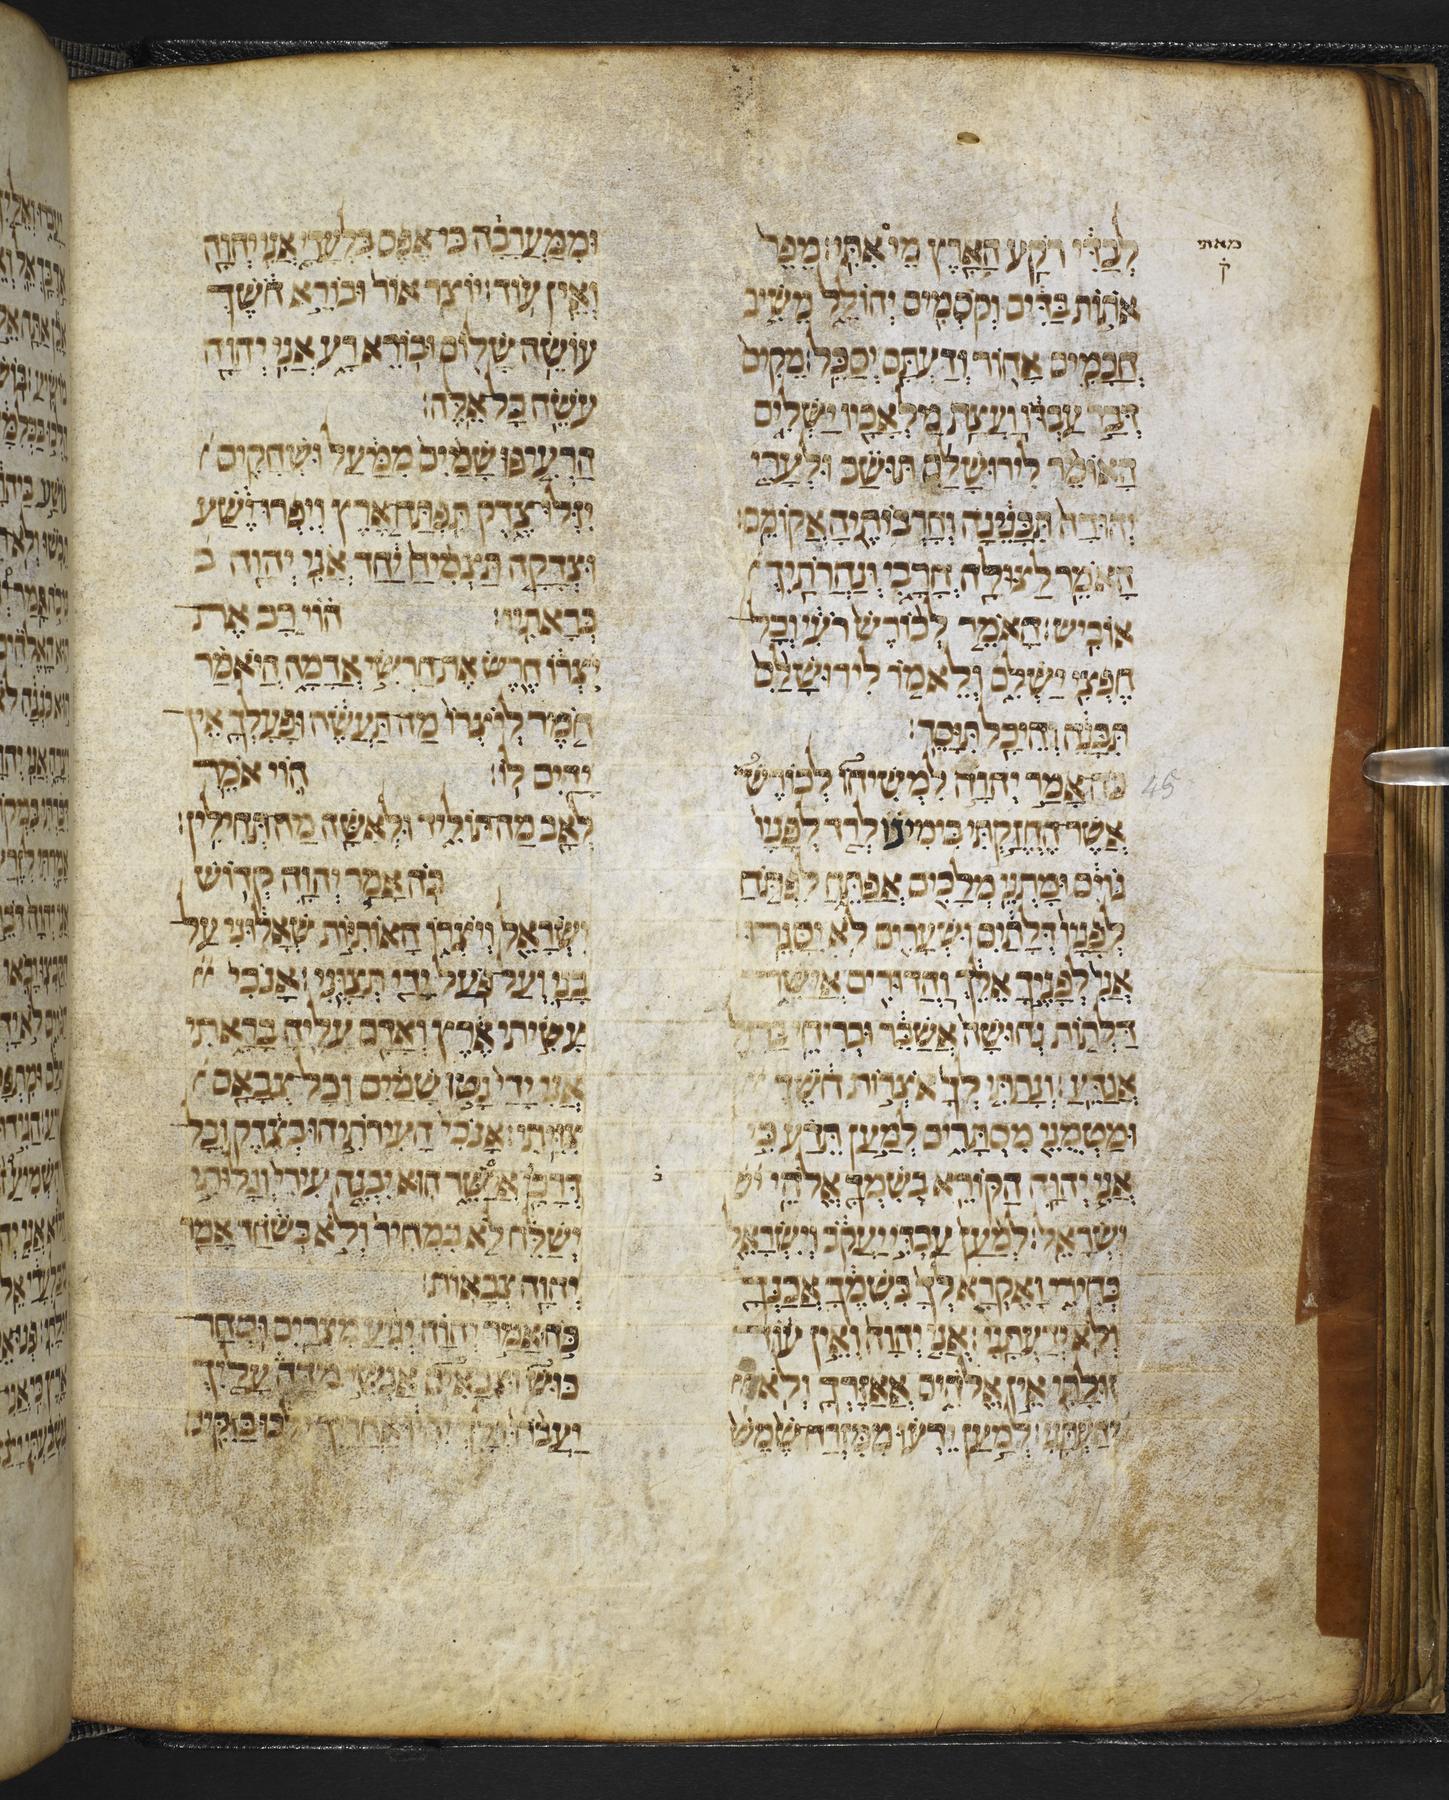 לְבַדִּי רֹקַע הָאָרֶץ מֵי אִתִּי׃ מֵפֵר
מאתי
ק
אֹתוֹת בַּדִּים וְקֹסְמִים יְהוֹלֵל מֵשִׁיב
חֲכָמִים אָחוֹר וְדַעְתָּם יְסַכֵּל׃ מֵקִים
דְּבַר עַבְדּוֹ וַעֲצַת מַלְאָכָיו יַשְׁלִים
הָאוֹמֵר לִירוּשָׁלִַם תּוּשָׁב וּלְעָרֵי
יְהוּדָה תִּבָּנֶינָה וְחָרְבוֹתֶיהָ אֲקוֹמֵם׃
הָאֹמֵר לַצּוּלָה חֳרָבִי וְנַהֲרֹתַיִךְ
אוֹבִישׁ׃ הָאֹמֵר לְכוֹרֶשׁ רֹעִי וְכָל
חֶפְצִי יַשְׁלִם וְלֵאמֹר לִירוּשָׁלִַם
תִּבָּנֶה וְהֵיכָל תִּוָּסֵד׃
כֹּה אָמַר יְהוָה לִמְשִׁיחוֹ לְכוֹרֶשׁ
45
אֲשֶׁר הֶחֱזַקְתִּי בִימִינוֹ לְרַד לְפָנָיו
גּוֹיִם וּמָתְנֵי מְלָכִים אֲפַתֵּחַ לִפְתֹּחַ
לְפָנָיו דְּלָתַיִם וּשְׁעָרִים לֹא יִסָּגֵרוּ׃
אֲנִי לְפָנֶיךָ אֵלֵךְ וַהֲדוּרִים אֲיַשֵּׁר
דַּלְתוֹת נְחוּשָׁה אֲשַׁבֵּר וּבְרִיחֵי בַרְזֶל
אֲגַדֵּעַ׃ וְנָתַתִּי לְךָ אֹצְרוֹת חֹשֶׁךְ
וּמַטְמֻנֵי מִסְתָּרִים לְמַעַן תֵּדַע כִּי
אֲנִי יְהוָה הַקּוֹרֵא בְשִׁמְךָ אֱלֹהֵי יש
יִשְׂרָאֵל׃ לְמַעַן עַבְדִּי יַעֲקֹב וְיִשְׂרָאֵל
בְּחִירִי וָאֶקְרָא לְךָ בִּשְׁמֶךָ אֲכַנְּךָ
וְלֹא יְדַעְתָּנִי׃ אֲנִי יְהוָה וְאֵין עוֹד
זוּלָתִי אֵין אֱלֹהִים אֲאַזֶּרְךָ וְלֹא
יְדַעְתָּנִי׃ לְמַעַן יֵדְעוּ מִמִּזְרַח שֶׁמֶשׁ
וּמִמַּעֲרָבָה כִּי אֶפֶס בִּלְעָדָי אֲנִי יְהוָה
וְאֵין עוֹד׃ יוֹצֵר אוֹר וּבוֹרֵא חֹשֶׁךְ
עוֹשֶׂה שָׁלוֹם וּבוֹרֵא רָע אֲנִי יְהוָה
עֹשֶׂה כָל אֵלֶּה׃
הַרְעִיפוּ שָׁמַיִם מִמַּעַל וּשְׁחָקִים
יִזְּלוּ צֶדֶק תִּפְתַּח אֶרֶץ וְיִפְרוּ יֶשַׁע
וּצְדָקָה תַצְמִיחַ יַחַד אֲנִי יְהוָה ב
בְּרָאתִיו׃ הוֹי רָב אֶת
יֹצְרוֹ חֶרֶשׂ אֶת חַרְשֵׂי אֲדָמָה הֲיֹאמַר
חֹמֶר לְיֹצְרוֹ מַה תַּעֲשֶׂה וּפָעָלְךָ אֵין
יָדַיִם לוֹ׃ הוֹי אֹמֵר
לְאָב מַה תּוֹלִיד וּלְאִשָּׁה מַה תְּחִילִין׃
כֹּה אָמַר יְהוָה קְדוֹשׁ
יִשְׂרָאֵל וְיֹצְרוֹ הָאוֹתִיּוֹת שְׁאָלוּנִי עַל
בָּנַי וְעַל פֹּעַל יָדַי תְּצַוֻּנִי׃ אָנֹכִי
עָשִׂיתִי אֶרֶץ וְאָדָם עָלֶיהָ בָרָאתִי
אֲנִי יָדַי נָטוּ שָׁמַיִם וְכָל צְבָאָם
צִוֵּיתִי׃ אָנֹכִי הַעִירֹתִיהוּ בְצֶדֶק וְכָל
דְּרָכָיו אֲיַשֵּׁר הוּא יִבְנֶה עִירִי וְגָלוּתִי
יְשַׁלֵּחַ לֹא בִמְחִיר וְלֹא בְשֹׁחַד אָמַר
יְהוָה צְבָאוֹת׃
כֹּה אָמַר יְהוָה יְגִיעַ מִצְרַיִם וּסְחַר
כּוּשׁ וּסְבָאִים אַנְשֵׁי מִדָּה עָלַיִךְ
יַעֲבֹרוּ וְלָךְ יִהְיוּ אַחֲרַיִךְ יֵלֵכוּ בַּזִּקִּים